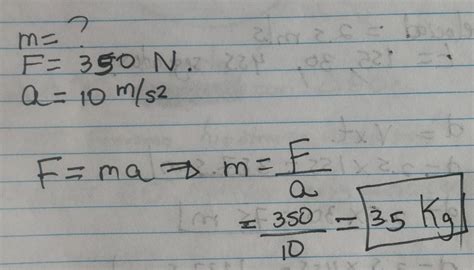 m = ?
F = 350 N.
a = 10 m/s2
F = ma ⇒ m = F/a
= 350/10 = 35 Kg